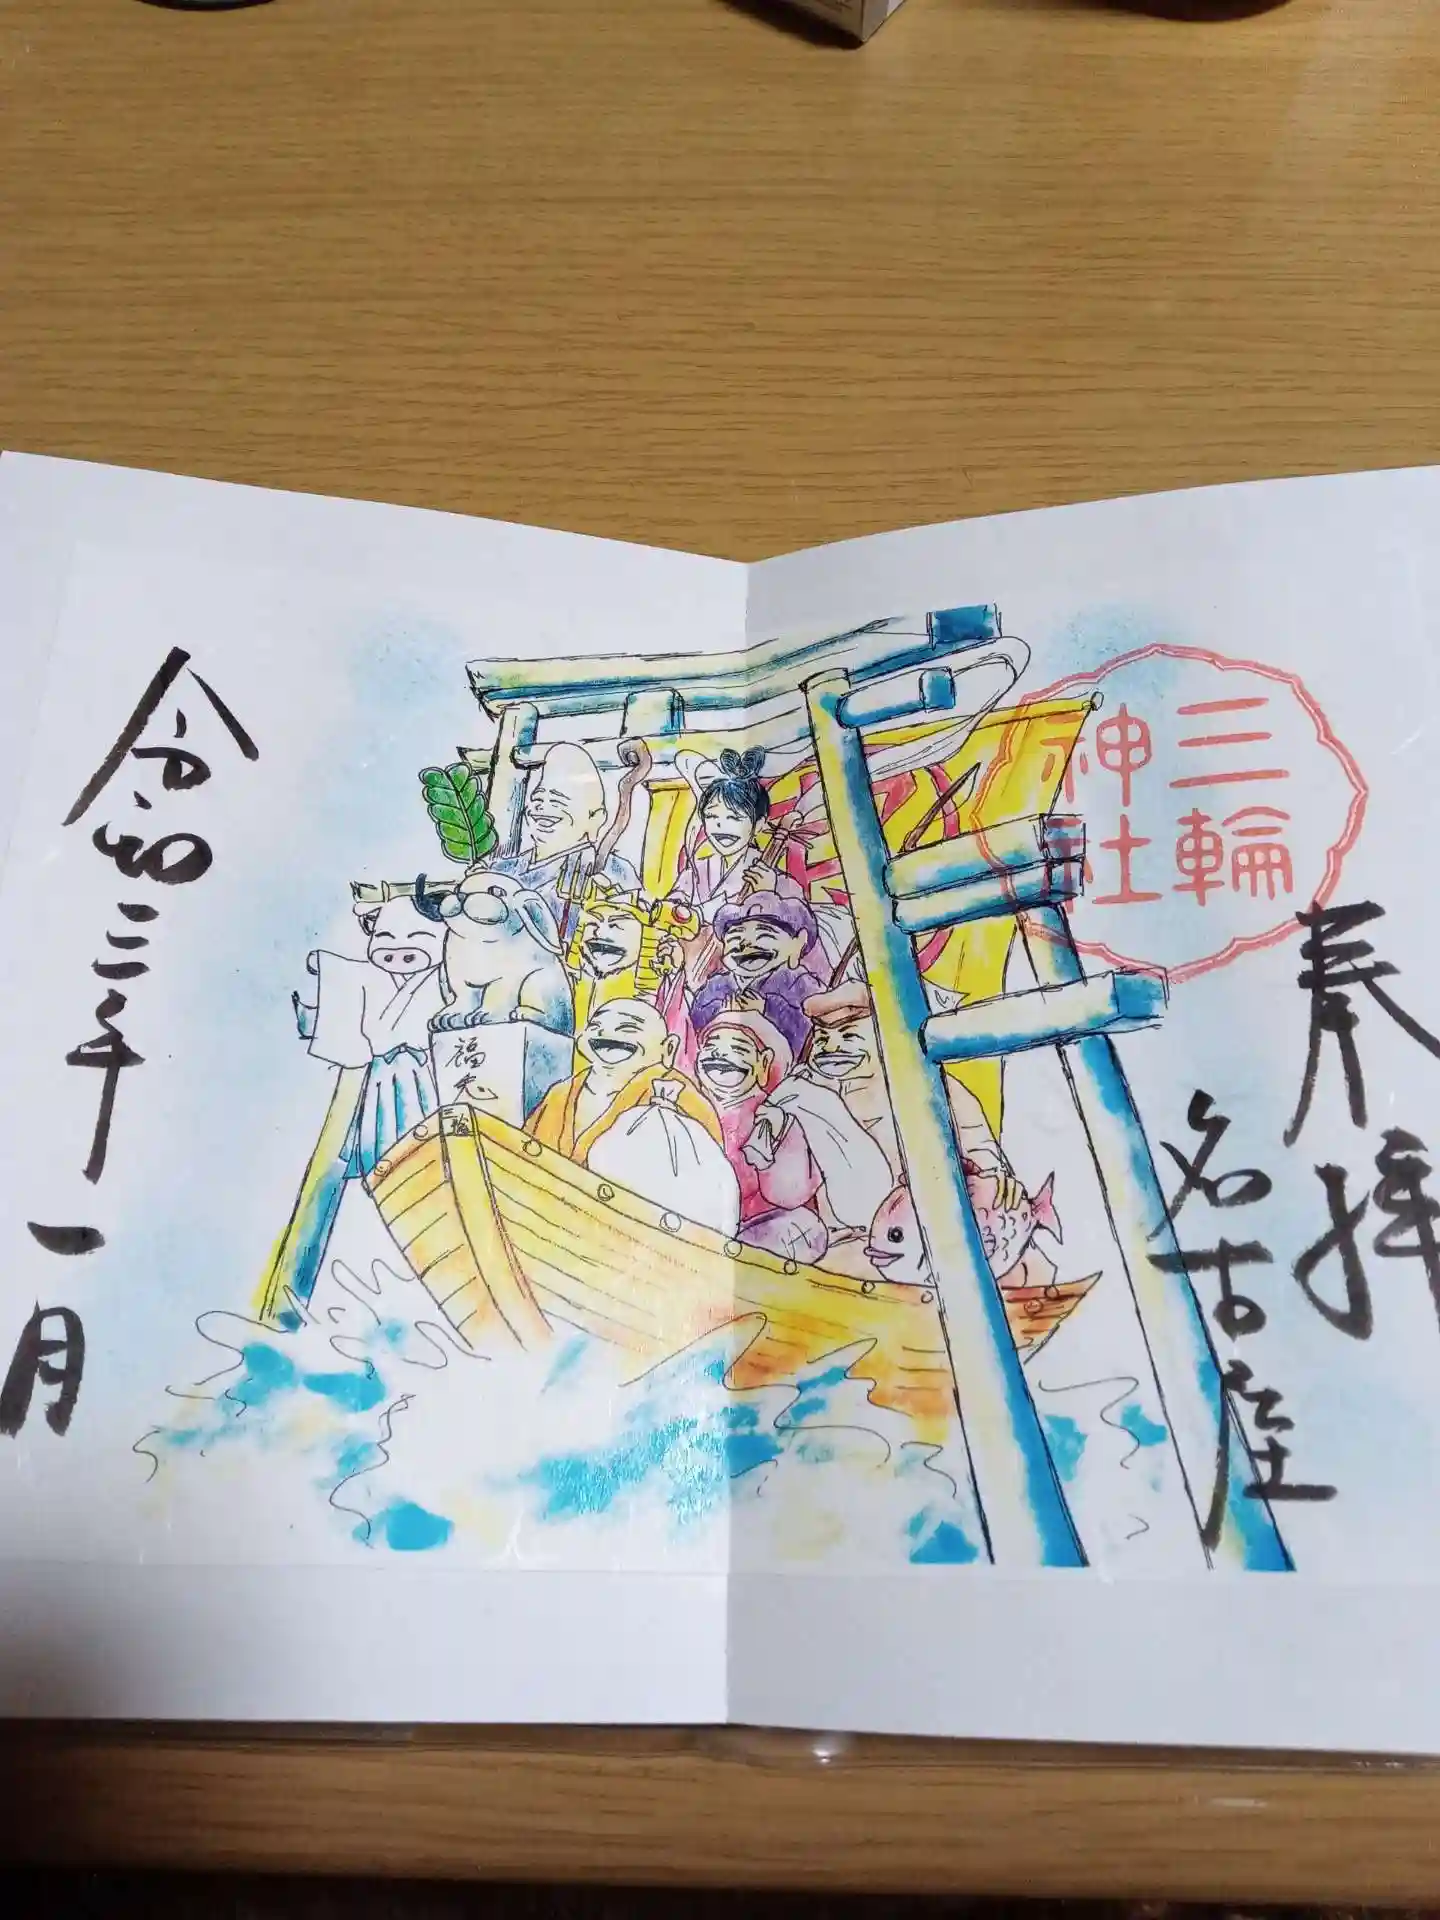 奉拝
名古屋
三輪
神社
福兎
三輪
令和三年 一月